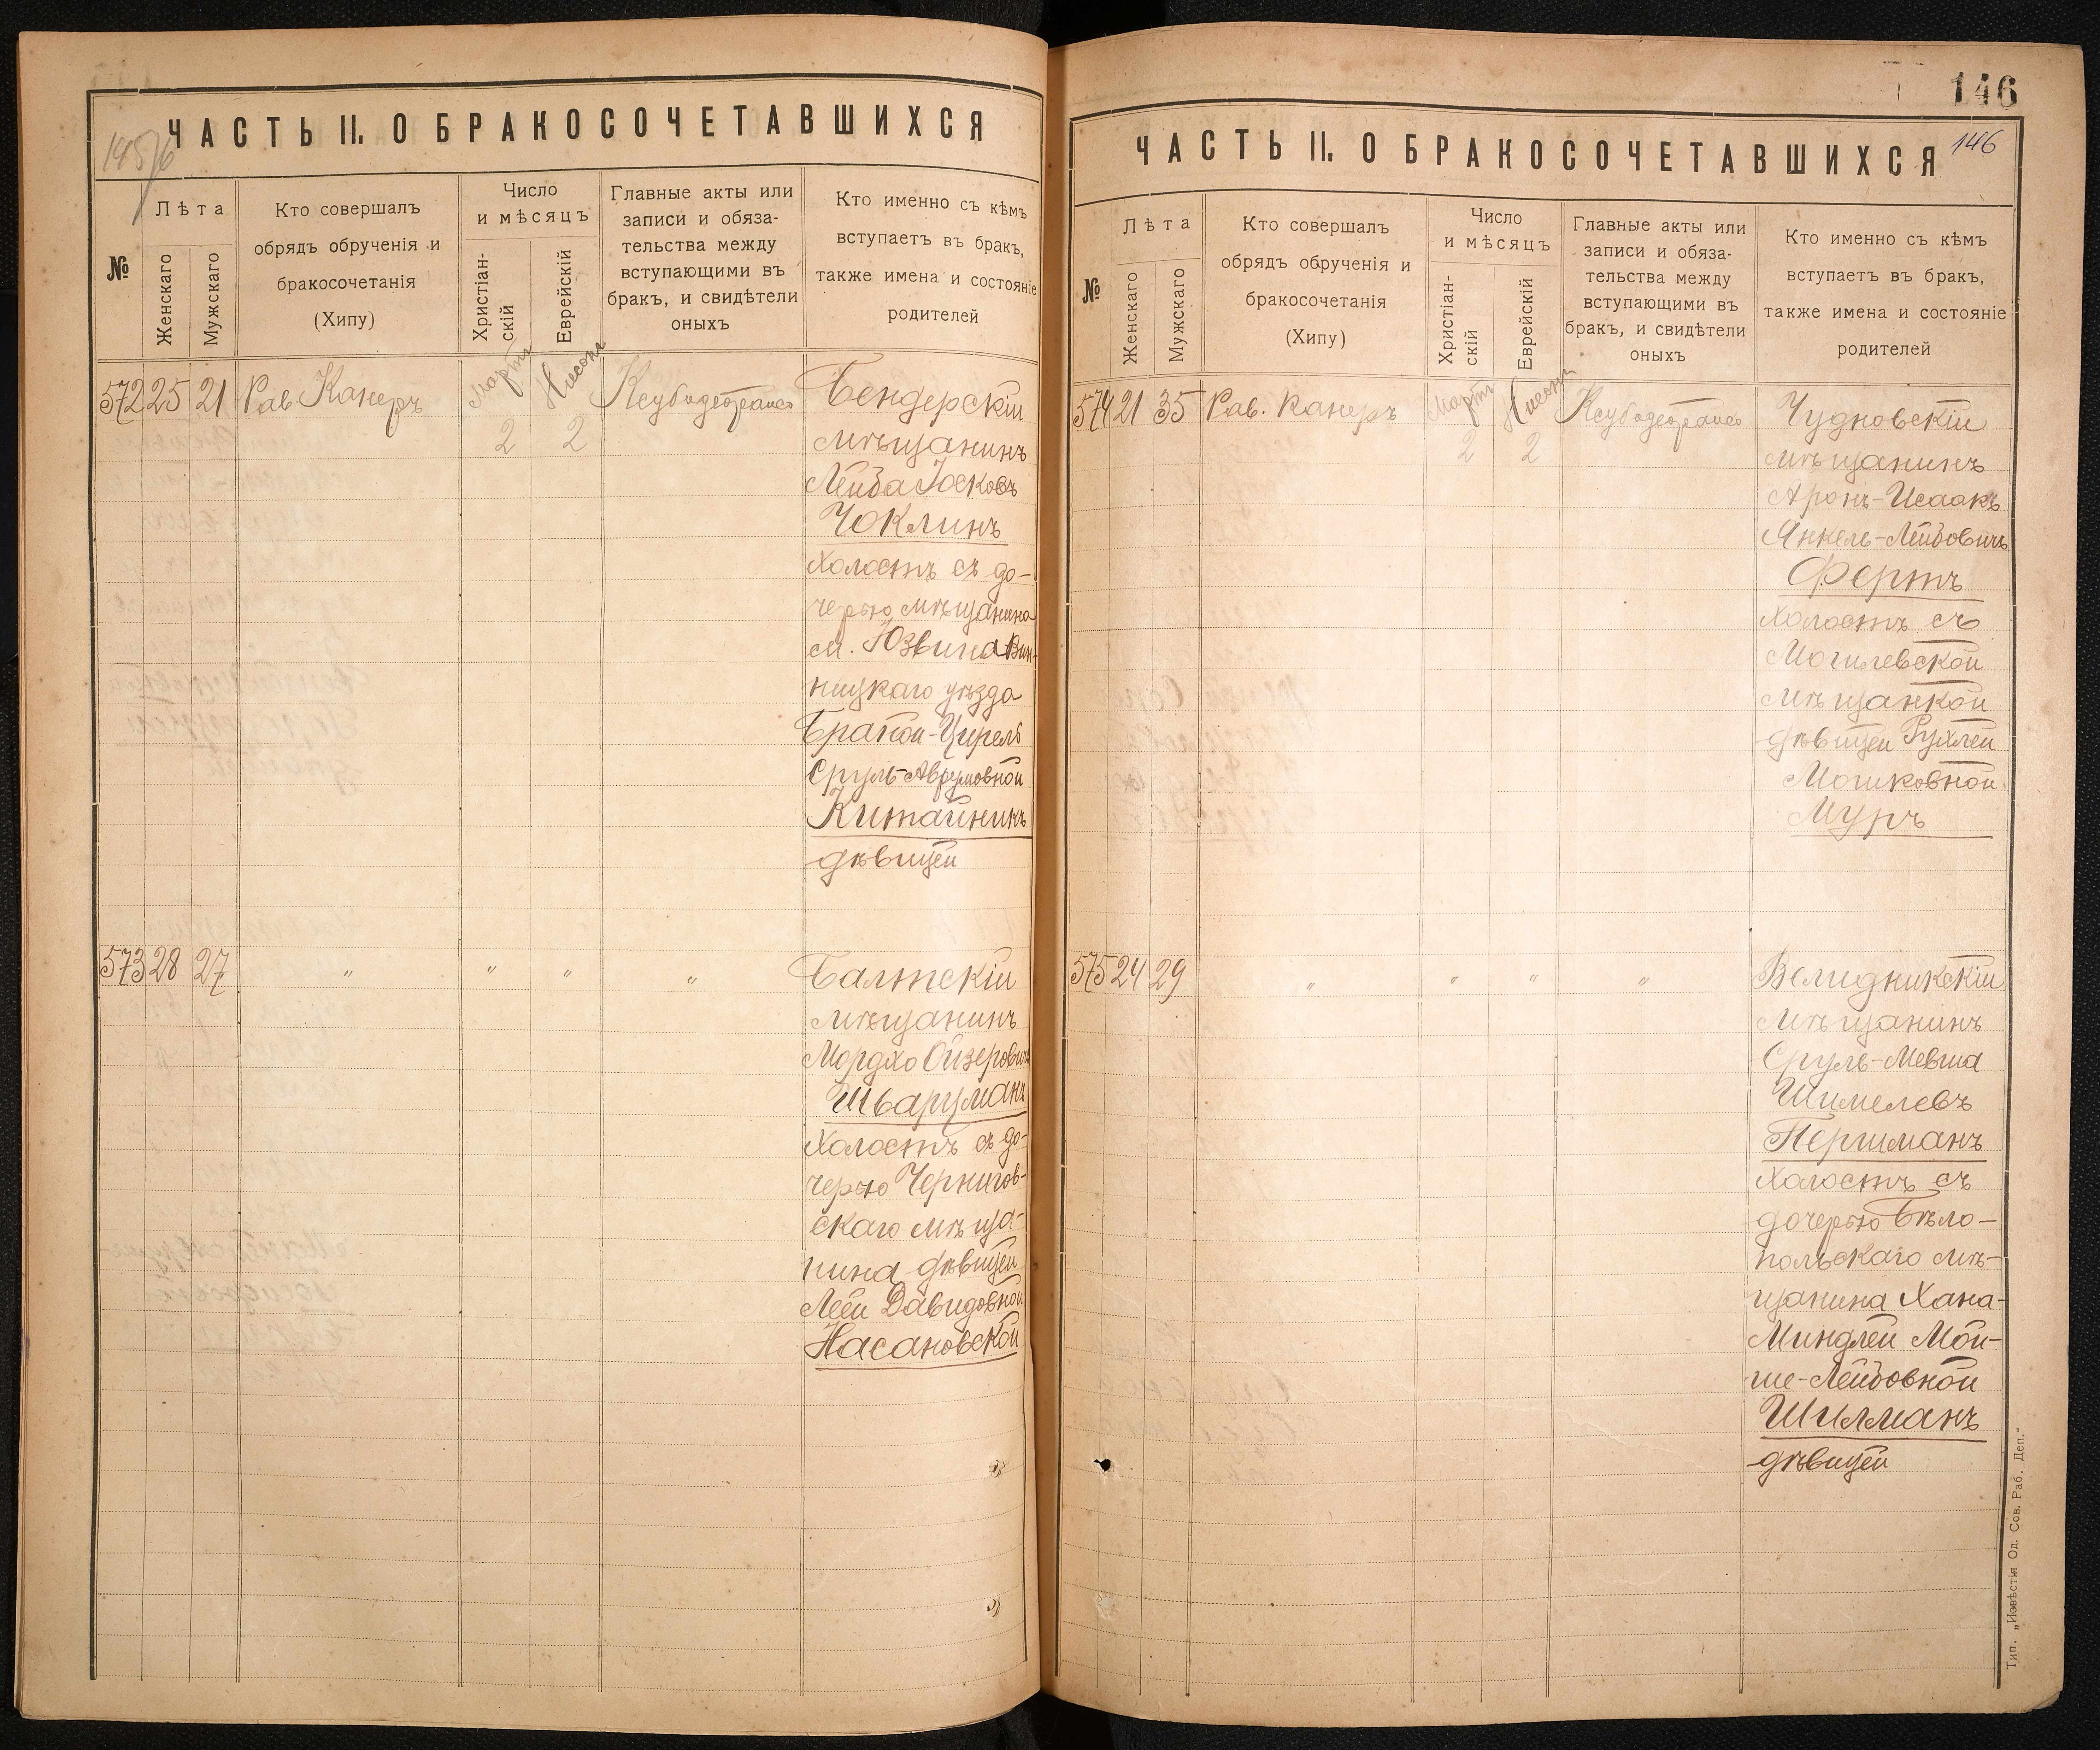 ЧАСТЬ II. О БРАКОСОЧЕТАВШИХСЯ
№
Лѣта
Женскаго
Мужскаго
Кто совершалъ
обрядъ обрученія и
бракосочетанія
(Хипу)
Число
и мѣсяцъ
Христіан-
скій
Еврейскій
Главные акты или
записи и обяза-
тельства между
вступающими въ
бракъ, и свидѣтели
оныхъ
Кто именно съ кѣмъ
вступаетъ въ бракъ,
также имена и состояніе
родителей
572 25 21 Рав. Канеръ
Мартъ
2
Нисонъ
2
Бендерскій
мѣщанинъ
Лейба Іосковъ
Чоклинъ
холостъ съ до-
черью мѣщанина
м. Юзвина Вин-
ницкаго уѣзда
Цирель
Сруль-Аврумовной
Китайникъ
дѣвицей
573 28 27 " " " "
Балтскій
мѣщанинъ
Мордхо Ойзеровичъ
Шварцманъ
холостъ съ до-
черью Чернигов-
скаго мѣща-
нина дѣвицей
Леей Давидовной
Насановской
146
ЧАСТЬ II. О БРАКОСОЧЕТАВШИХСЯ
146
№
Лѣта
Женскаго
Мужскаго
Кто совершалъ
обрядъ обрученія и
бракосочетанія
(Хипу)
Число
и мѣсяцъ
Христіан-
скій
Еврейскій
Главные акты или
записи и обяза-
тельства между
вступающими въ
бракъ, и свидѣтели
оныхъ
Кто именно съ кѣмъ
вступаетъ въ бракъ,
также имена и состояніе
родителей
574 21 35 Рав. Канеръ
Мартъ
2
Нисонъ
2
Чудновскій
мѣщанинъ
Аронъ-Исаакъ
Янкель-Лейбовичъ
Фертъ
холостъ съ
Могилевской
мѣщанкой
дѣвицей Рухлей
Мошковной
Муръ
575 24 29 " " " "
Велидникскій
мѣщанинъ
Сруль-Мевша
Шимелевъ
Першманъ
холостъ съ
дочерью Бѣло-
польскаго мѣ-
щанина Хана-
Миндлей Мой-
ше-Лейбовной
Шилманъ
дѣвицей
Тип. „Извѣстія Од. Сов. Раб. Деп.“